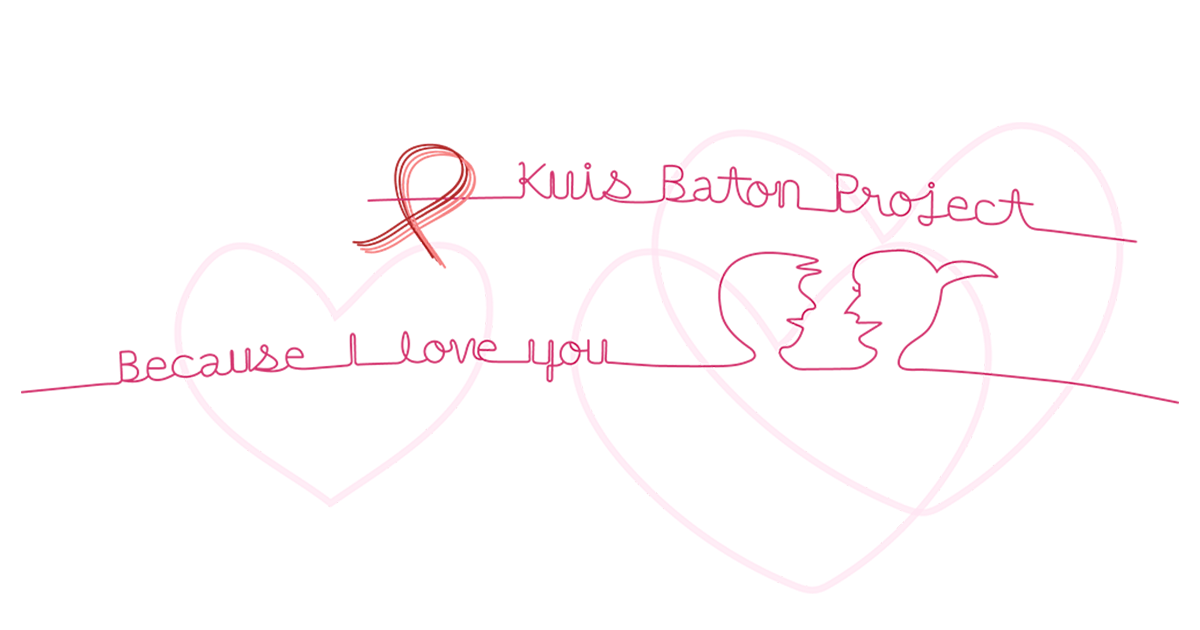 Kuis Baton Project
Because I love you